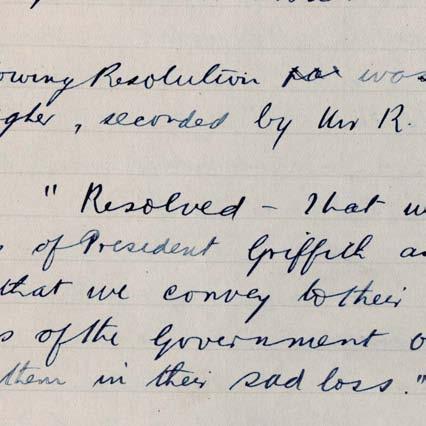 owing Resolution was
gher, seconded by Mr R.
"Resolved – That w
s of President Griffith a
that we convey to their
s of the Government o
them in their sad loss."